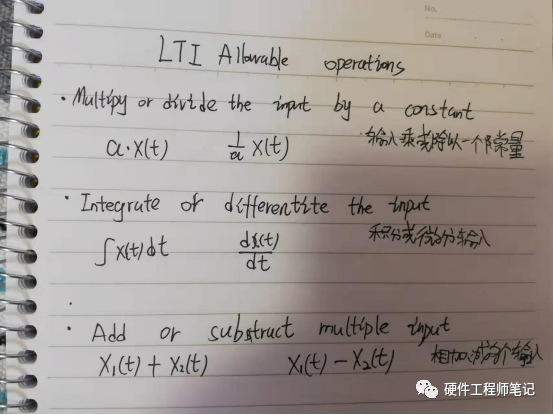 No.
Date
LTI Allowable operations
· Multipy or divide the input by a constant
a·x(t) 1/a x(t) ·输入乘或除以一个常量
· Integrate or differentite the input
∫x(t)dt dx(t)/dt 积分或微分输入
· Add or substruct multiple input
X₁(t) + X₂(t) X₁(t) − X₂(t) 相加减的个输入
硬件工程师笔记